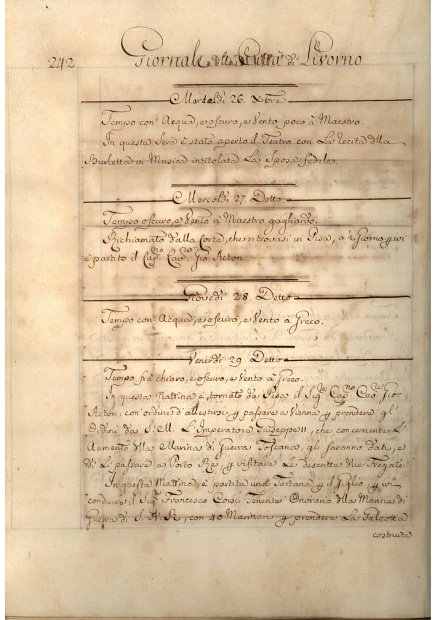 242 Giornale della Città di Livorno
Martedì 26. Xbre
Tempo con Acqua, e oscuro, e Vento poco à Maestro.
In questa Sera è stato aperto il Teatro con La recita della
Burletta in Musica intitolata La Sposa fedele.
Mercoldì 27. Detto
Tempo oscuro, e Vento à Maestro gagliardo.
Richiamato dalla Corte, che ritrovasi in Pisa, a Giorno
è partito il Cap.no Cav. Gio Acton.
Giovedì 28. Detto
Tempo con Acqua, e oscuro, e Vento à Greco.
Venerdì 29. Detto
Tempo frà chiaro, e oscuro, e Vento à Greco.
In questa Mattina è tornato da Pisa il Sig.re Cap.no Cav.
Acton, con ordine d'allestirsi passare a Vienna prendere gl'
Ordini da S. M. L'Imperatore Giuseppe II, che concernenti L'
Aumento della Marina di Guerra Toscana, gli saranno dati, e
di Lì passare a Porto Re visitare Le descritte due Fregate
In questa Mattina è partita una Tartana il Giglio
condurre il Sig.re Francesco Corsi Tenente Onorario della Marina di
Guerra di S. A. R., con 40 Marinari prendere La Galeotta
costruita